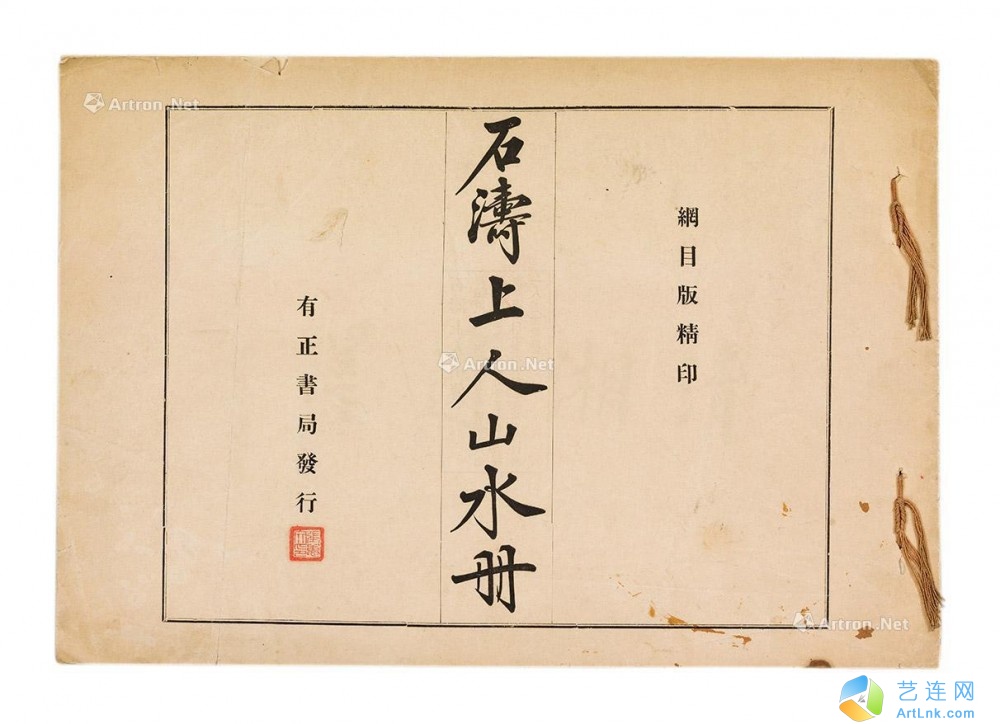 網目版精印
石濤上人山水册
有正書局發行
Artron.Net
Artron.Net
Artron.Net
艺连网
ArtLnk.com